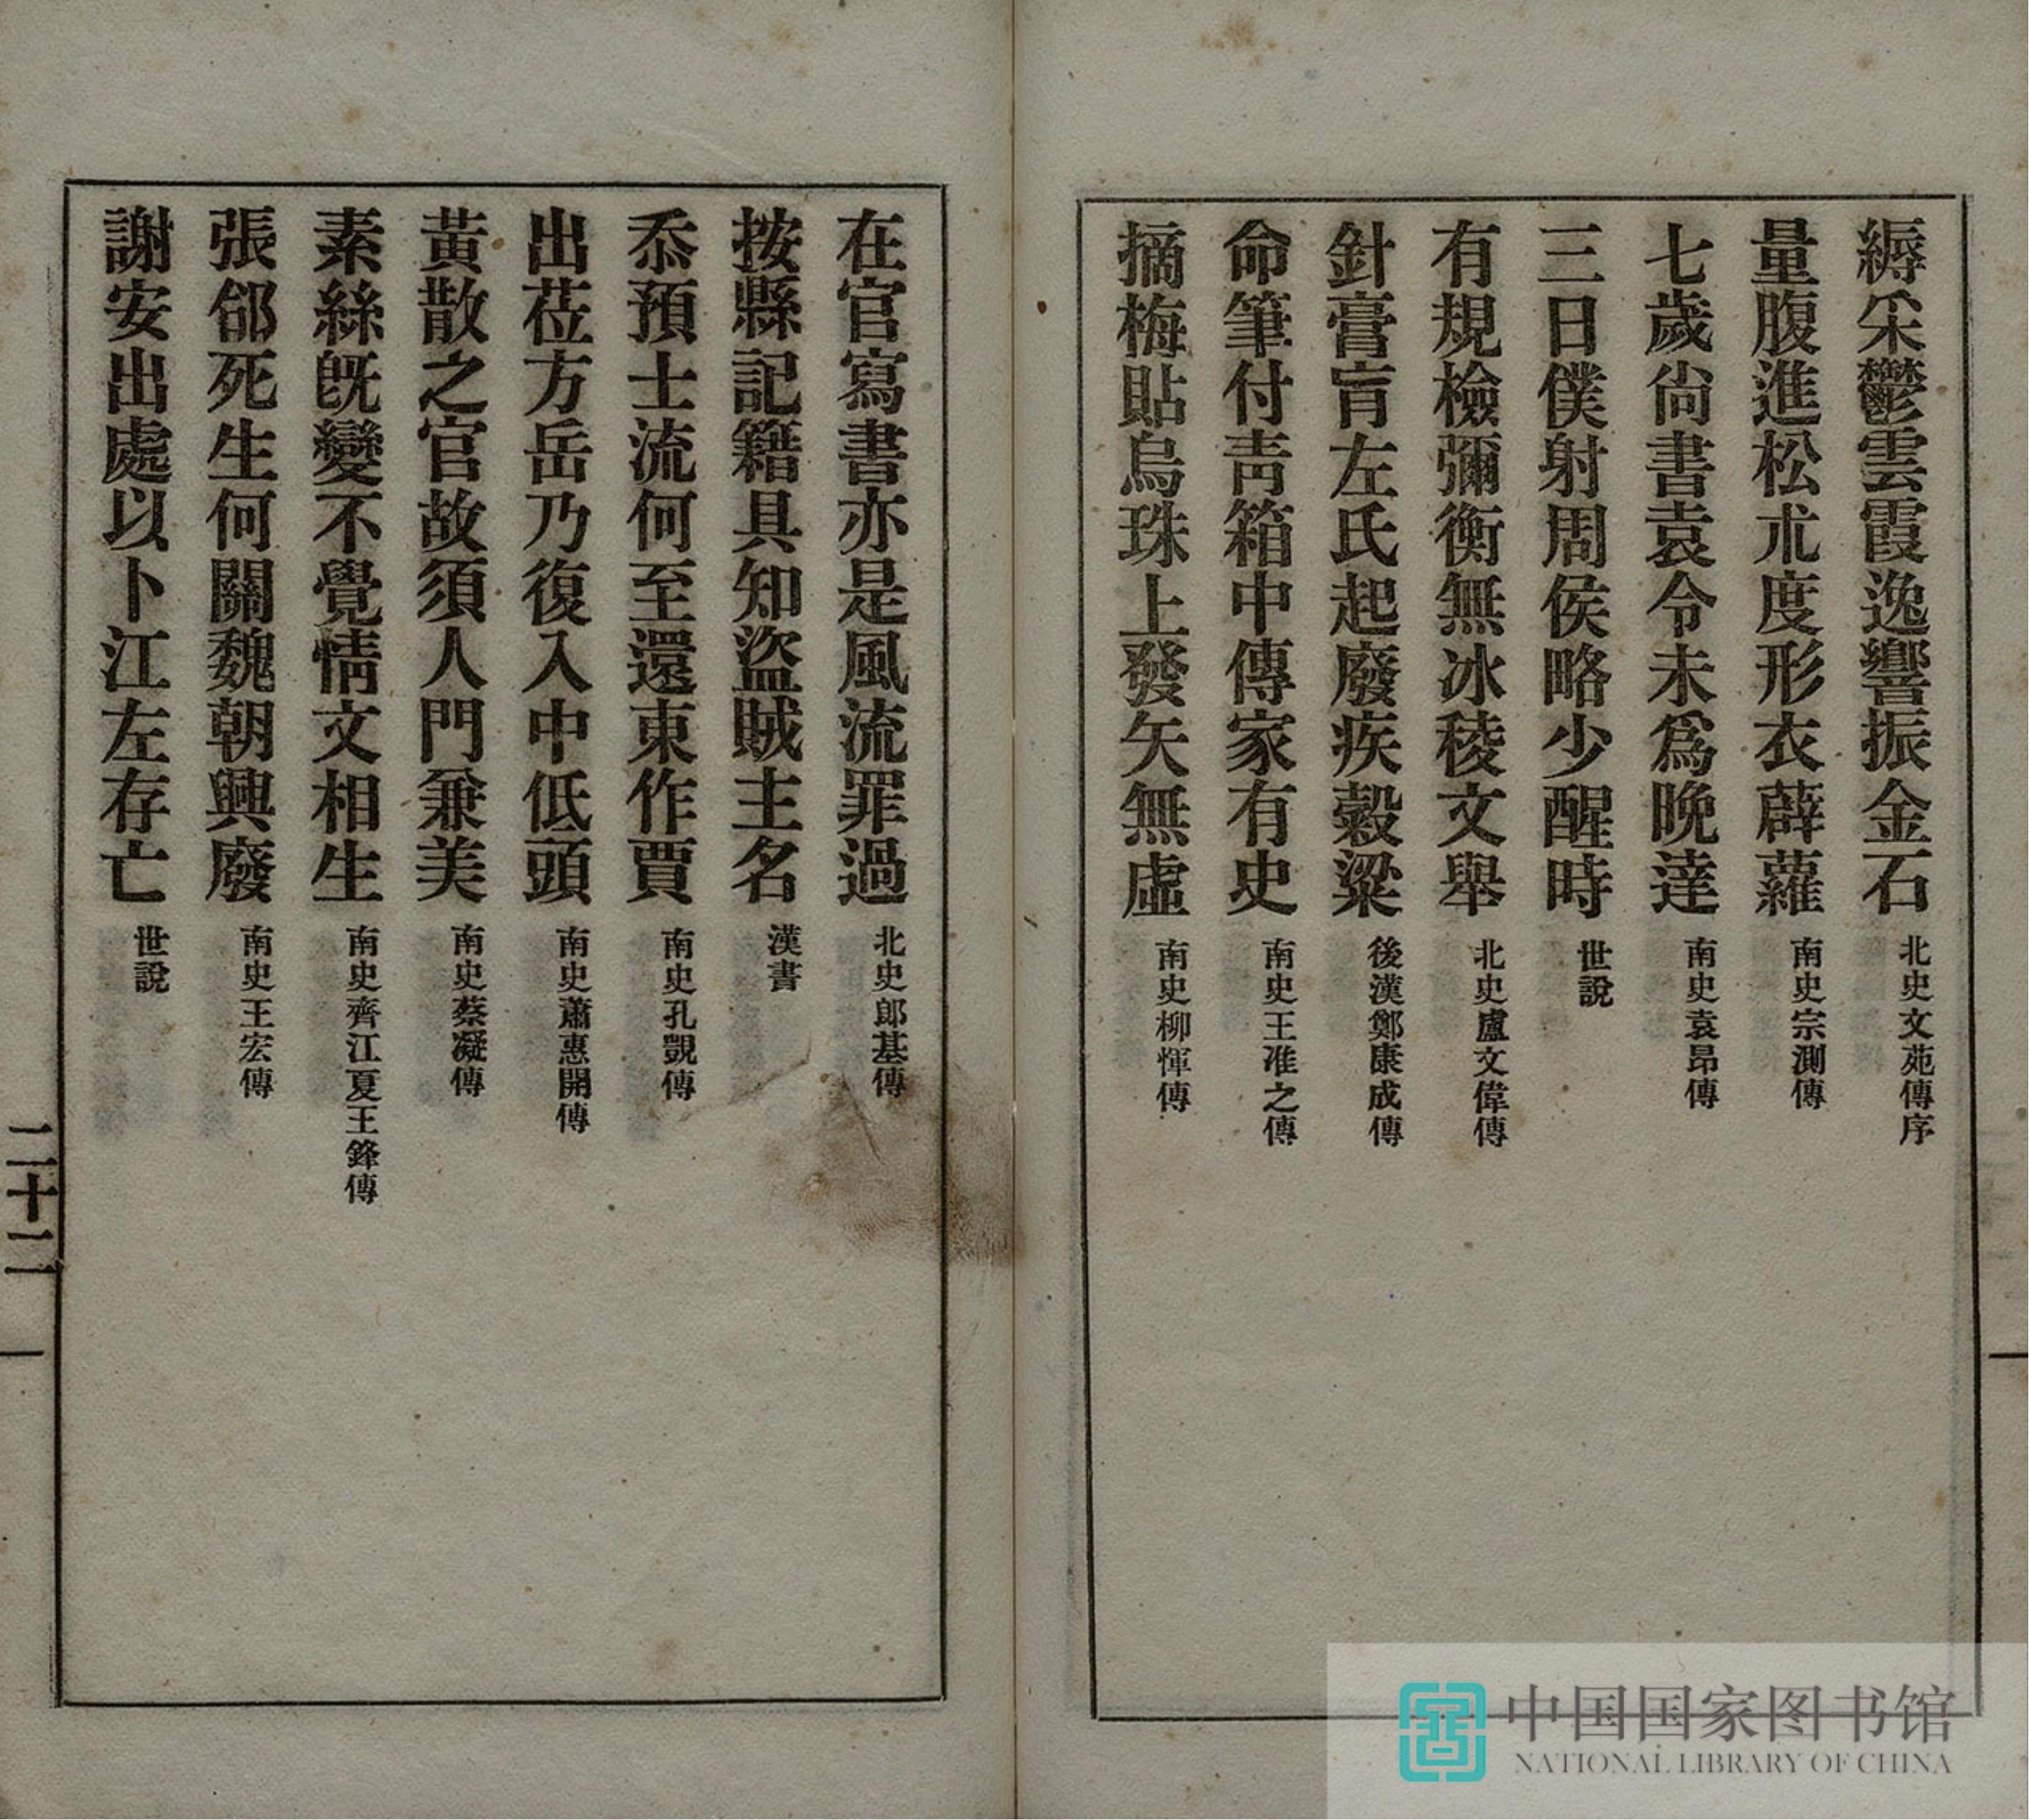 縟釆鬱雲霞逸響振金石 北史文苑傳序
量腹進松朮度形衣薜蘿 南史宗測傳
七歲尙書袁令未爲晚達 南史袁昂傳
三日僕射周侯略少醒時 世說
有規檢彌衡無冰稜文舉 北史盧文偉傳
針膏肓左氏起廢疾穀粱 後漢鄭康成傳
命筆付靑箱中傳家有史 南史王准之傳
摘梅貼烏珠上發矢無虛 南史柳惲傳
在官寫書亦是風流罪過 北史郎基傳
按縣記籍具知盜賊主名 漢書
忝預士流何至還東作賈 南史孔覬傳
出莅方岳乃復入中低頭 南史蕭惠開傳
黃散之官故須人門兼美 南史蔡凝傳
素絲旣變不覺情文相生 南史齊江夏王鋒傳
張郃死生何關魏朝興廢 南史王宏傳
謝安出處以卜江左存亡 世說
二十二
中国国家图书馆
NATIONAL LIBRARY OF CHINA